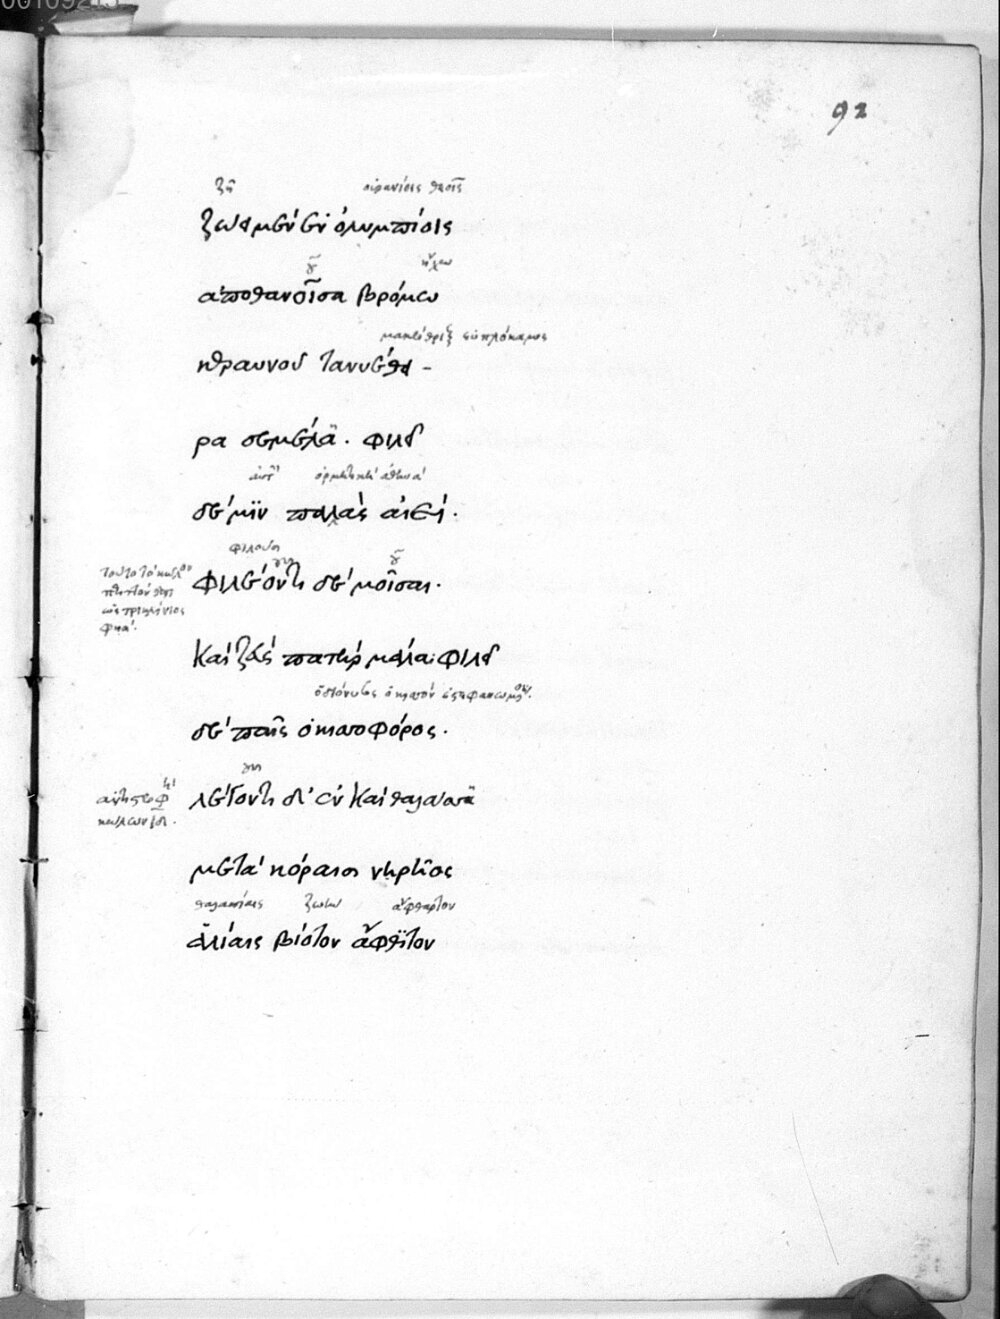 92
ζῇ οὐρανίοις θεοῖς
ζώει μὲν ἐν ὀλυμπίοις
ου ἤχω
ἀποθανοῖσα βρόμω
μακρόθριξ εὐπλόκαμος
κεραυνοῦ τανυέθει-
ρα σεμέλα. φιλεῖ
δέ μιν παλλὰς αἰεί.
φιλοῦσι
φιλέοντι δὲ μοῖσαι.
τοῦτο τὸ κῶλον
ὡς τρικλίνιος
φησί.
καὶ ζεὺς πατὴρ μάλα· φιλεῖ
ὁ διόνυσος
δὲ παῖς ὁ κισσοφόρος.
σι
λέγοντι δ' ἐν καὶ θαλάσσα
μετὰ κόραισι νηρῆος
θαλασσίαις ζωὴν ἄφθαρτον
ἁλίαις βίοτον ἄφθιτον